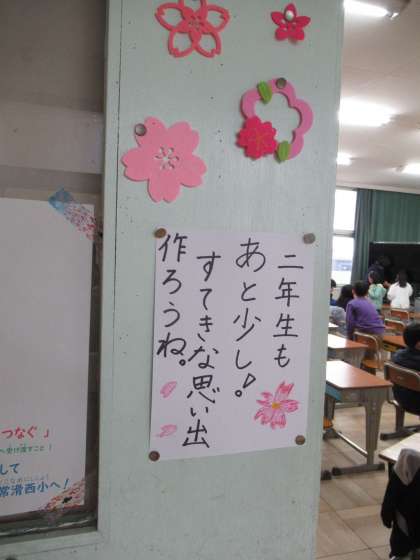 二年生も
あと少し!
すてきな思い出
作ろうね。
つなぐ」
へ受け渡すこと)
して
常滑西小へ!